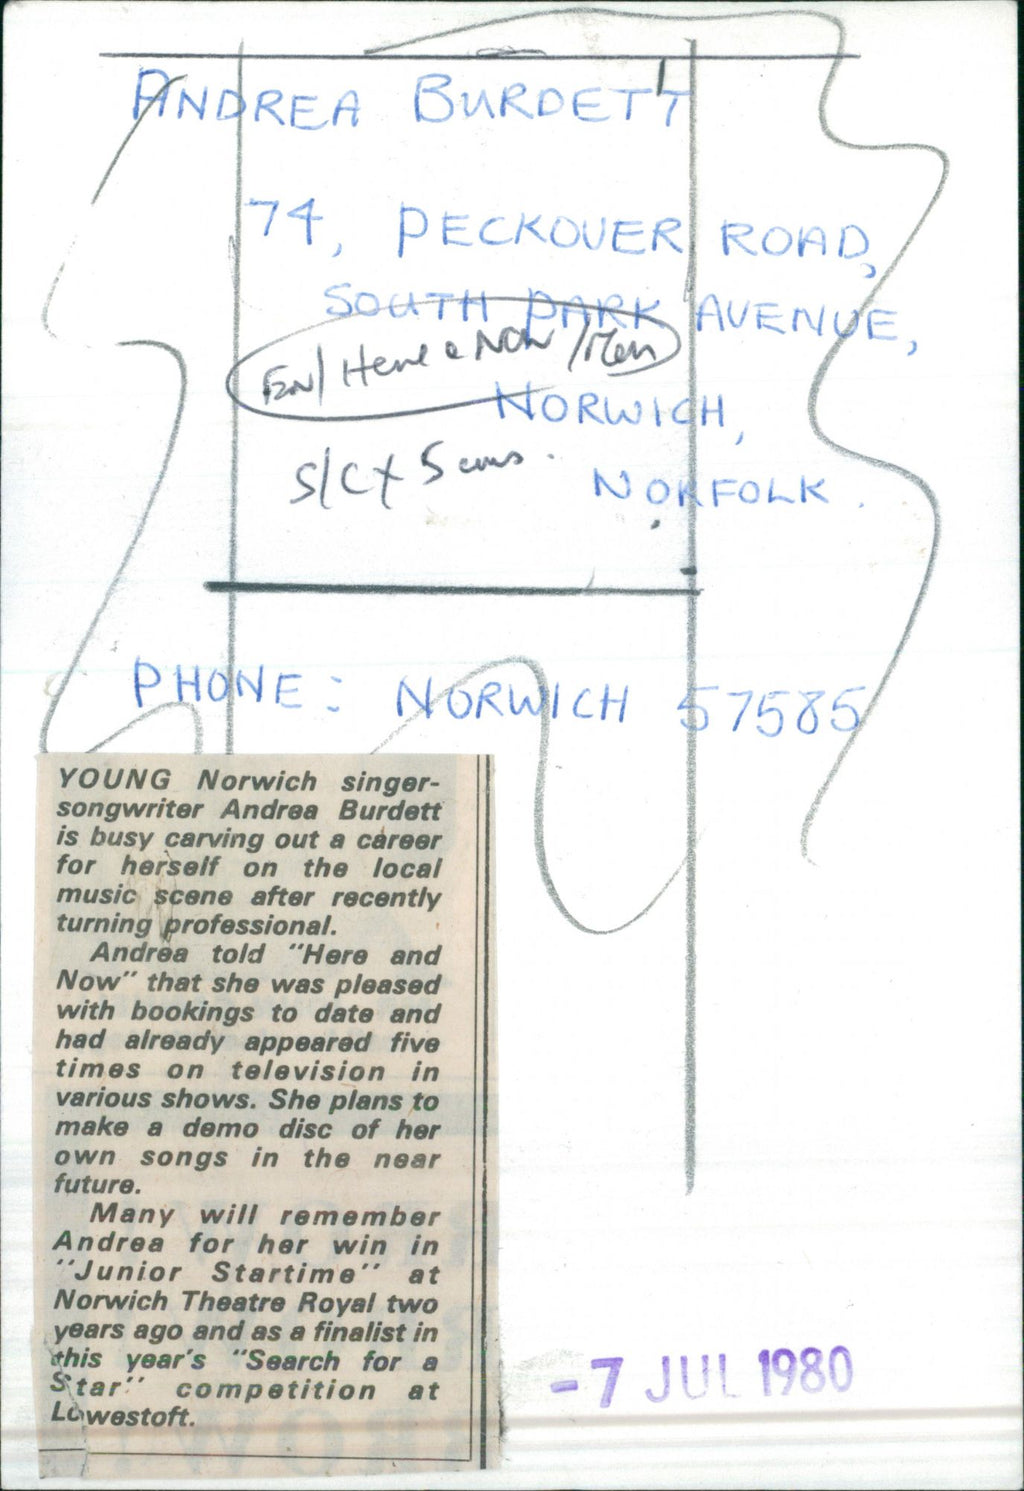 ANDREA BURDETT
74, PECKOVER ROAD,
SOUTH PARK AVENUE,
EEN/ Here & Now / Mon
NORWICH,
S/C x 5 cms.
NORFOLK.
PHONE: NORWICH 57585
YOUNG Norwich singer-
songwriter Andrea Burdett
is busy carving out a career
for herself on the local
music scene after recently
turning professional.
Andrea told "Here and
Now" that she was pleased
with bookings to date and
had already appeared five
times on television in
various shows. She plans to
make a demo disc of her
own songs in the near
future.
Many will remember
Andrea for her win in
"Junior Startime" at
Norwich Theatre Royal two
years ago and as a finalist in
this year's "Search for a
Star" competition at
Lowestoft.
-7 JUL 1980